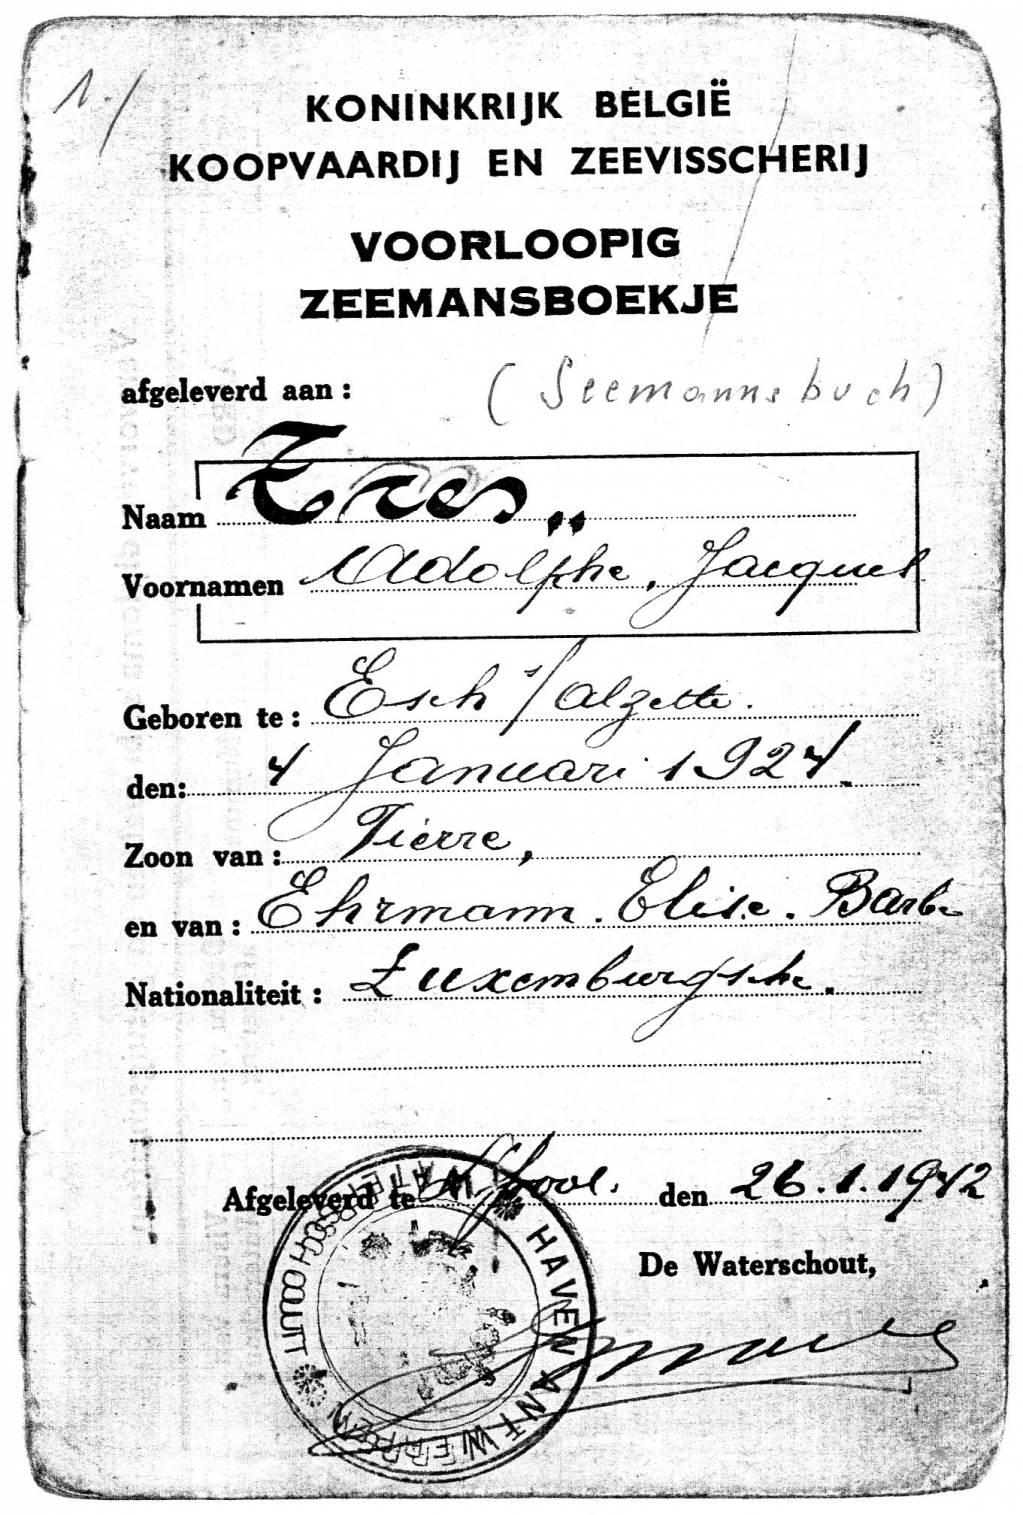 1./
KONINKRIJK BELGIË
KOOPVAARDIJ EN ZEEVISSCHERIJ
VOORLOOPIG
ZEEMANSBOEKJE
afgeleverd aan :
(Seemannsbuch)
Naam Tres „
Voornamen Adolphe, Jacques
Geboren te : Esch s/Alzette.
den: 4 Januari 1924.
Zoon van : Pierre,
en van : Ehrmann. Elise. Barbe
Nationaliteit : Luxemburgsche.
Afgeleverd te L'pool. den 26.1.1942
De Waterschout,
WATERSCHOUT HAVEN ANTWERPEN